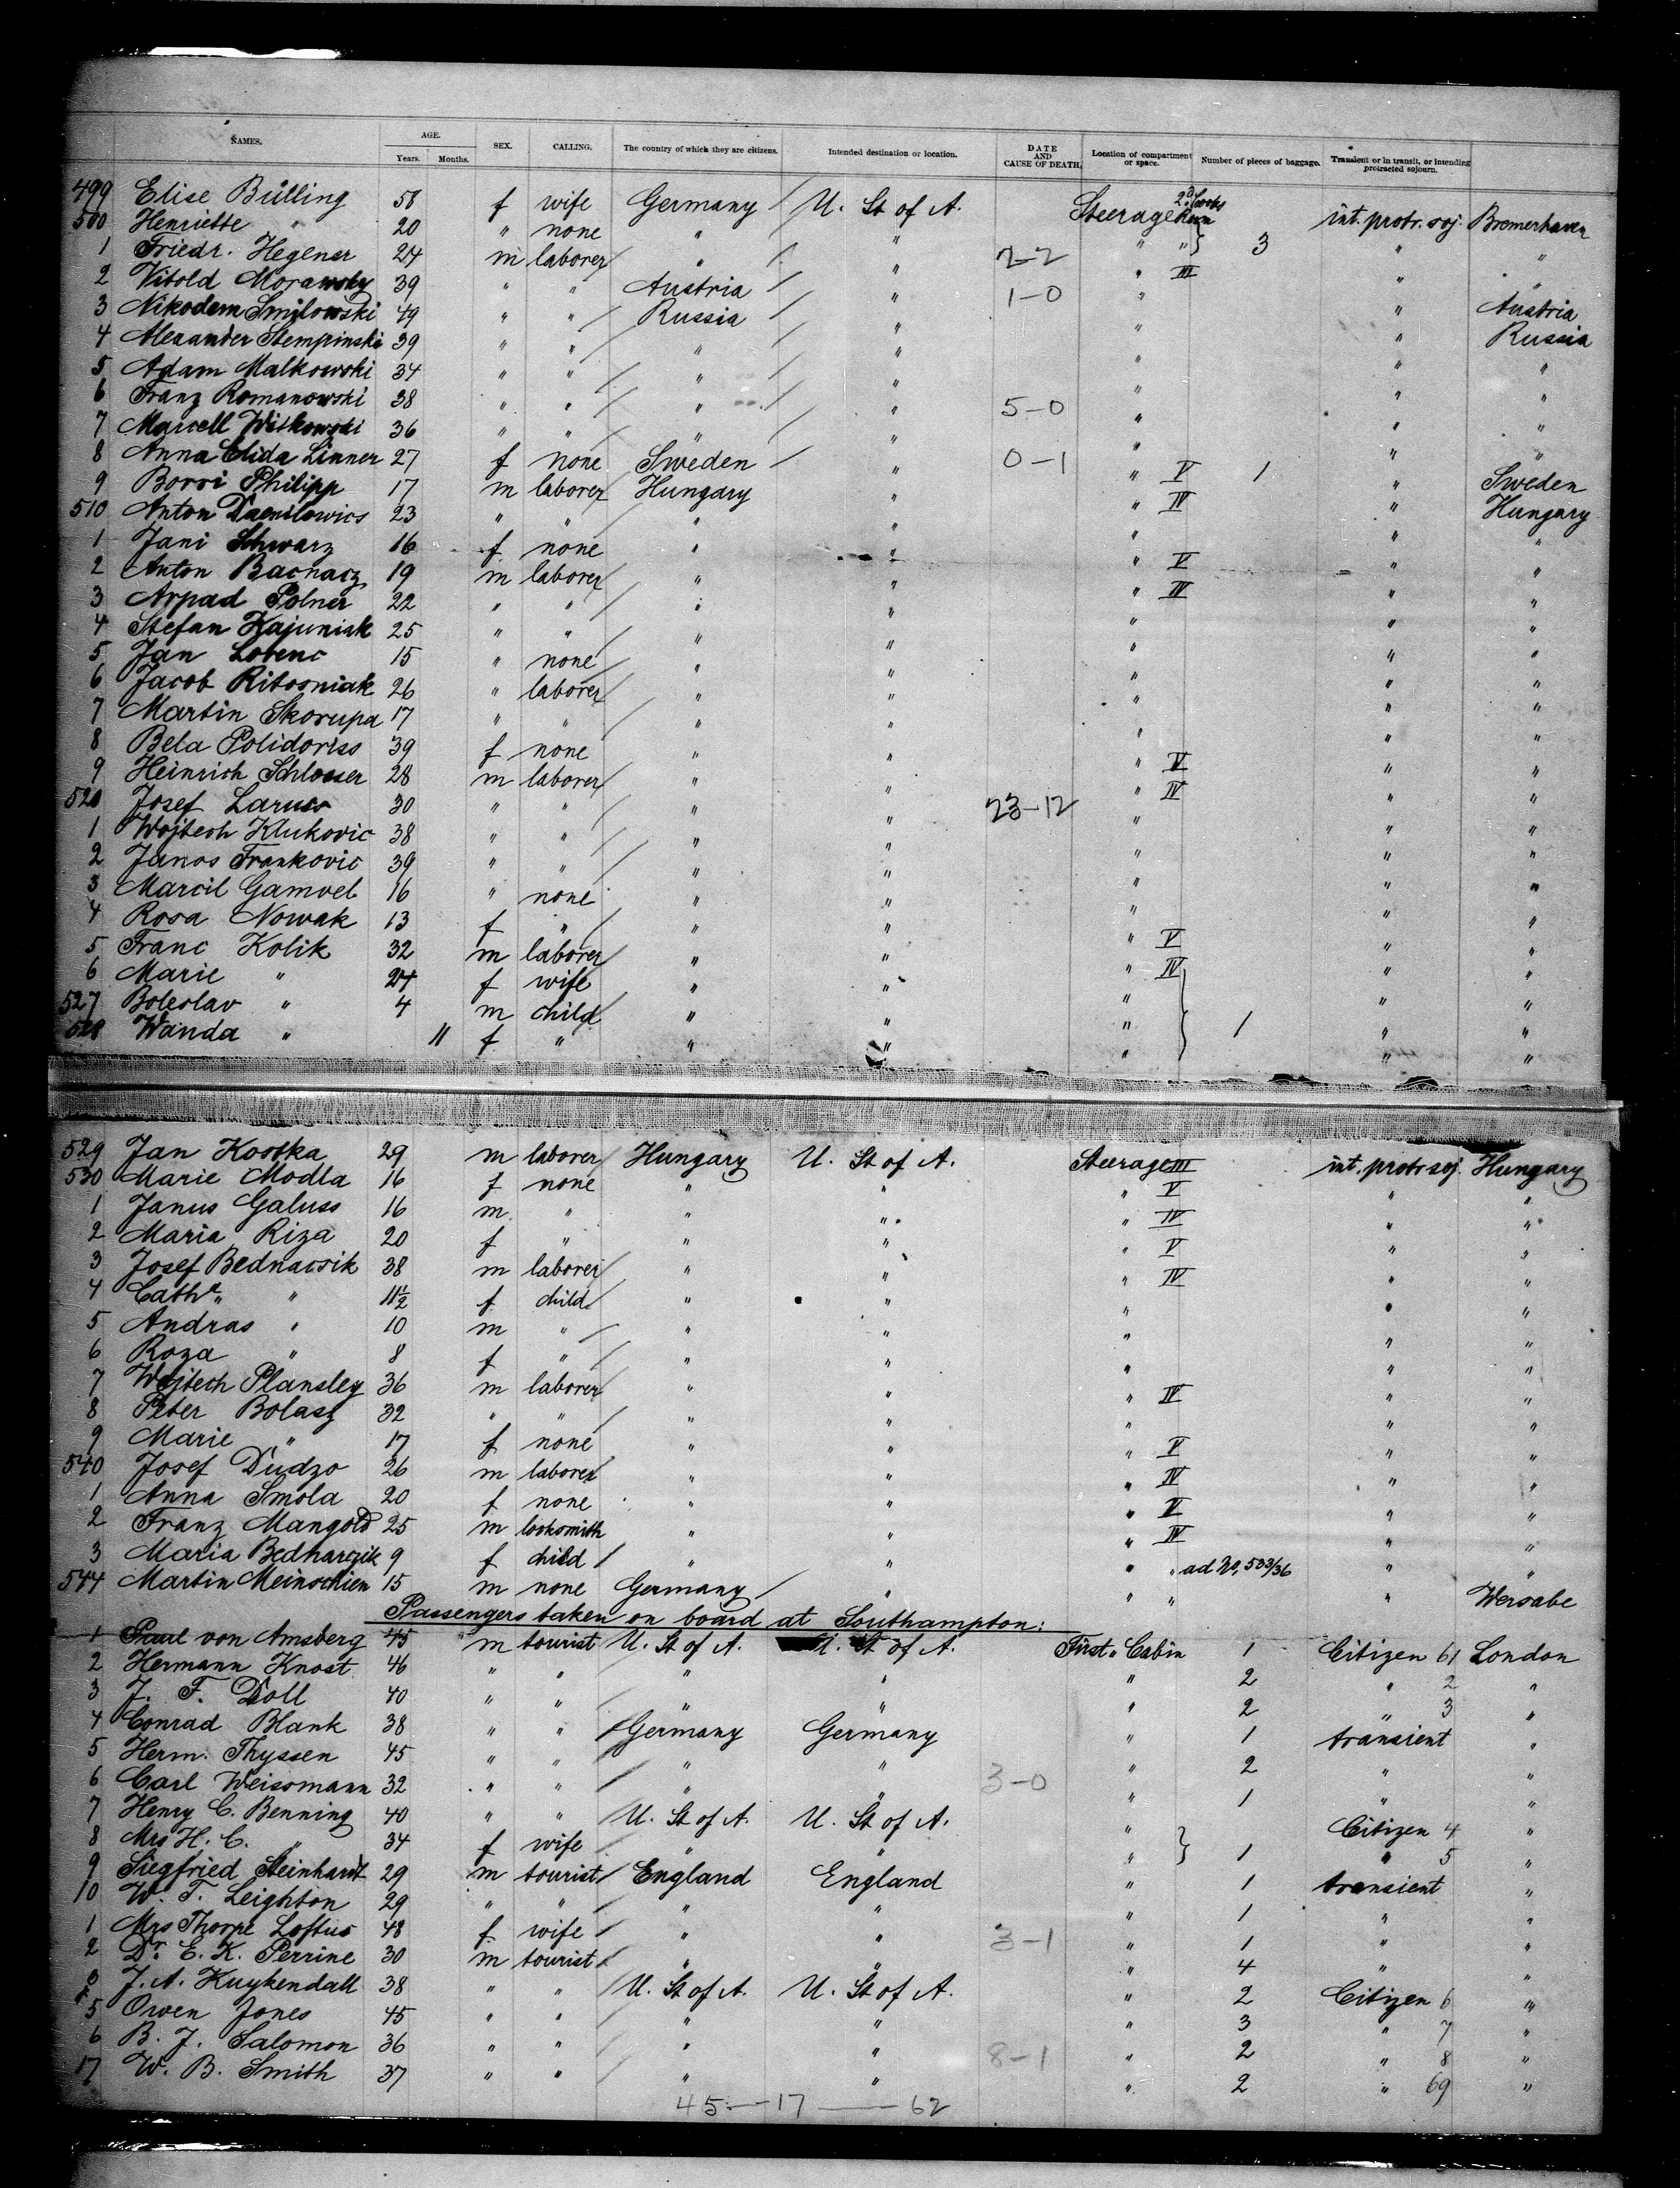 NAMES. AGE. Years. Months. SEX. CALLING. The country of which they are citizens. Intended destination or location. DATE AND CAUSE OF DEATH. Location of compartment or space. Number of pieces of baggage. Transient or in transit, or intending protracted sojourn.
499 Elise Bülling 58 f wife Germany / U. St of A. Steerage 2d Room int. protr. soj. Bremerhaven
500 Henriette " 20 " none " " " " } 3 " "
1 Friedr. Hegener 24 m laborer " / " 2-2 " III " "
2 Vitold Morawsky 39 " " Austria / " 1-0 " " Austria
3 Nikodem Smilowski 49 " " / Russia / " " " Russia
4 Alexander Stempinski 39 " " / " / " " " "
5 Adam Malkowski 34 " " / " / " " " "
6 Franz Romanowski 38 " " / " / " 5-0 " " "
7 Marcell Witkowski 36 " " / " / " " " "
8 Anna Elida Linner 27 f none Sweden / " 0-1 " V 1 " Sweden
9 Borri Philipp 17 m laborer Hungary " " IV " Hungary
510 Anton Daenilowics 23 " " / " " " " "
1 Jani Schwarz 16 f none " " " V " "
2 Anton Bacnacz 19 m laborer " " " III " "
3 Arpad Polner 22 " " / " " " " "
4 Stefan Kajuniak 25 " " / " " " " "
5 Jan Lorenc 15 " none / " " " " "
6 Jacob Ritosniak 26 " laborer " " " " "
7 Martin Skorupa 17 " " / " " " " "
8 Bela Polidoriss 39 f none " " " V " "
9 Heinrich Schlosser 28 m laborer " " " IV " "
520 Josef Laruss 30 " " / " " 23-12 " " "
1 Wojtech Klukovic 38 " " / " " " " "
2 Janos Frankovic 39 " " / " " " " "
3 Marcil Gamvel 16 " none " " " " "
4 Rosa Nowak 13 f " / " " " V " "
5 Franc Kolik 32 m laborer " " " IV " "
6 Marie " 24 f wife " " " " "
527 Boleslav " 4 m child " " " } 1 " "
528 Wanda " 11 f " " " " " "
529 Jan Kostka 29 m laborer Hungary U. St of A. Steerage III int. protr soj. Hungary
530 Marie Modla 16 f none " " " V " "
1 Janus Galuss 16 m " " " " IV " "
2 Maria Riza 20 f " " " " V " "
3 Josef Bednacsik 38 m laborer " " " IV " "
4 Cath. " 11½ f child " " " " "
5 Andras " 10 m " / " " " " "
6 Roza " 8 f " / " " " " "
7 Wojtech Plansley 36 m laborer " " " IV " "
8 Peter Bolasz 32 " " / " " " " "
9 Marie " 17 f none " " " V " "
540 Josef Dudzo 26 m laborer " " " IV " "
1 Anna Smola 20 f none " " " V " "
2 Franz Mangold 25 m locksmith " " " IV " "
3 Maria Bednarczik 9 f child / " " " " ad No. 533/36 " "
544 Martin Meinschien 15 m none Germany / " " " " Wersabe
Passengers taken on board at Southampton:
1 Paul von Amsberg 45 m tourist U. St of A. U. St of A. First Cabin 1 Citizen 61 London
2 Hermann Knost 46 " " " " " 2 " 2 "
3 J. F. Doll 40 " " " " " 2 " 3 "
4 Conrad Blank 38 " " / Germany Germany " 1 transient "
5 Herm. Thyssen 45 " " / " " " 2 " "
6 Carl Weissmann 32 " " / " " 3-0 " 1 " "
7 Henry C. Benning 40 " " U. St of A. U. St of A. " Citizen 4 "
8 Mrs H. C. " 34 f wife " " " } 1 " 5 "
9 Siegfried Steinhardt 29 m tourist / England England " 1 transient "
10 W. F. Leighton 29 " " / " " " 1 " "
1 Mrs Thorpe Loftus 48 f wife / " " 3-1 " 1 " "
2 Dr. E. K. Perrine 30 m tourist / " " " 4 " "
3 J. A. Kuykendall 38 " " U. St of A. U. St of A. " 2 Citizen 6 "
5 Owen Jones 45 " " " " " 3 " 7 "
6 B. J. Salomon 36 " " / " " 8-1 " 2 " 8 "
17 W. B. Smith 37 " " / " " " 2 " 69 "
45 — 17 — 62